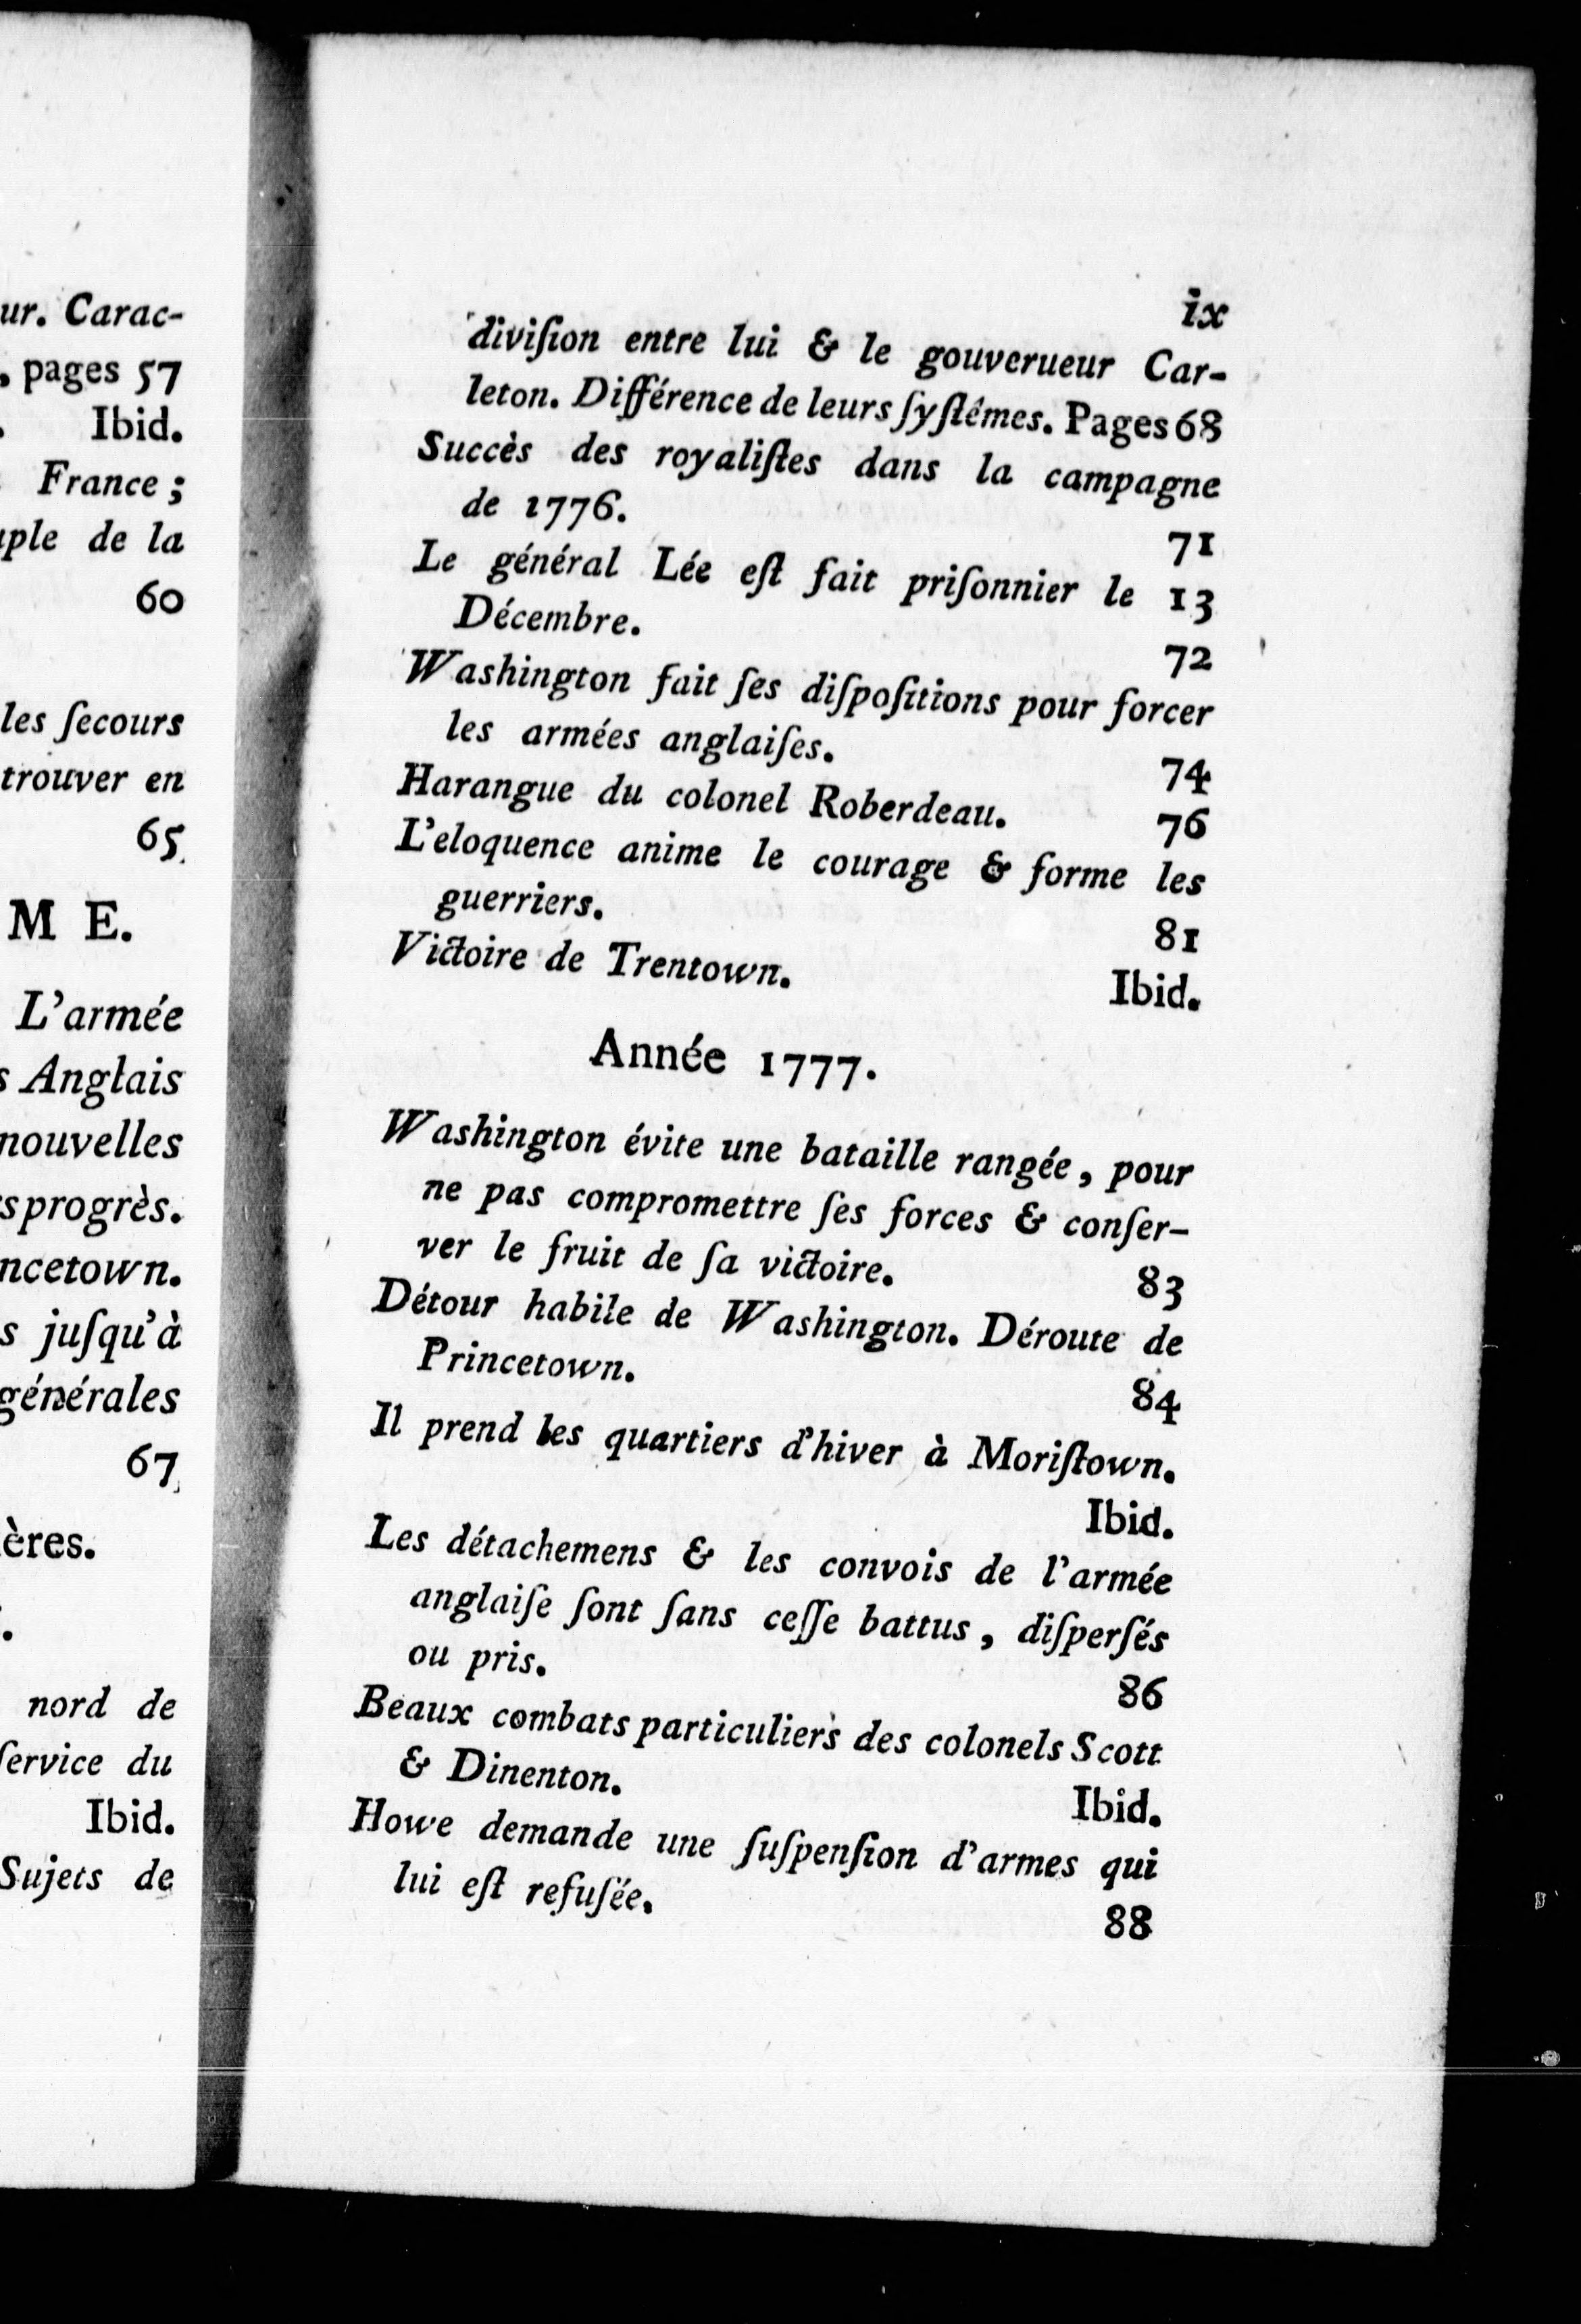 ur. Carac-
, pages 57
Ibid.
France ;
ple de la
60
les ſecours
trouver en
65
M E.
L'armée
s Anglais
nouvelles
s progrès.
ncetown.
s juſqu'à
générales
67
ères.
.
nord de
ſervice du
Ibid.
Sujets de
ix
diviſion entre lui & le gouverueur Car-
leton. Différence de leurs ſyſtêmes. Pages 68
Succès des royaliſtes dans la campagne
de 1776. 71
Le général Lée eſt fait priſonnier le 13
Décembre. 72
Washington fait ſes diſpoſitions pour forcer
les armées anglaiſes. 74
Harangue du colonel Roberdeau. 76
L'eloquence anime le courage & forme les
guerriers. 81
Victoire de Trentown. Ibid.
Année 1777.
Washington évite une bataille rangée, pour
ne pas compromettre ſes forces & conſer-
ver le fruit de ſa victoire. 83
Détour habile de Washington. Déroute de
Princetown. 84
Il prend les quartiers d'hiver à Moriſtown.
Ibid.
Les détachemens & les convois de l'armée
anglaiſe ſont ſans ceſſe battus, diſperſés
ou pris. 86
Beaux combats particuliers des colonels Scott
& Dinenton. Ibid.
Howe demande une ſuſpenſion d'armes qui
lui eſt refuſée. 88